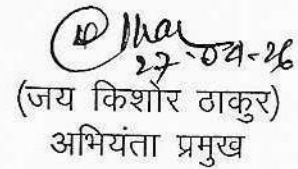 27-04-26
(जय किशोर ठाकुर)
अभियंता प्रमुख